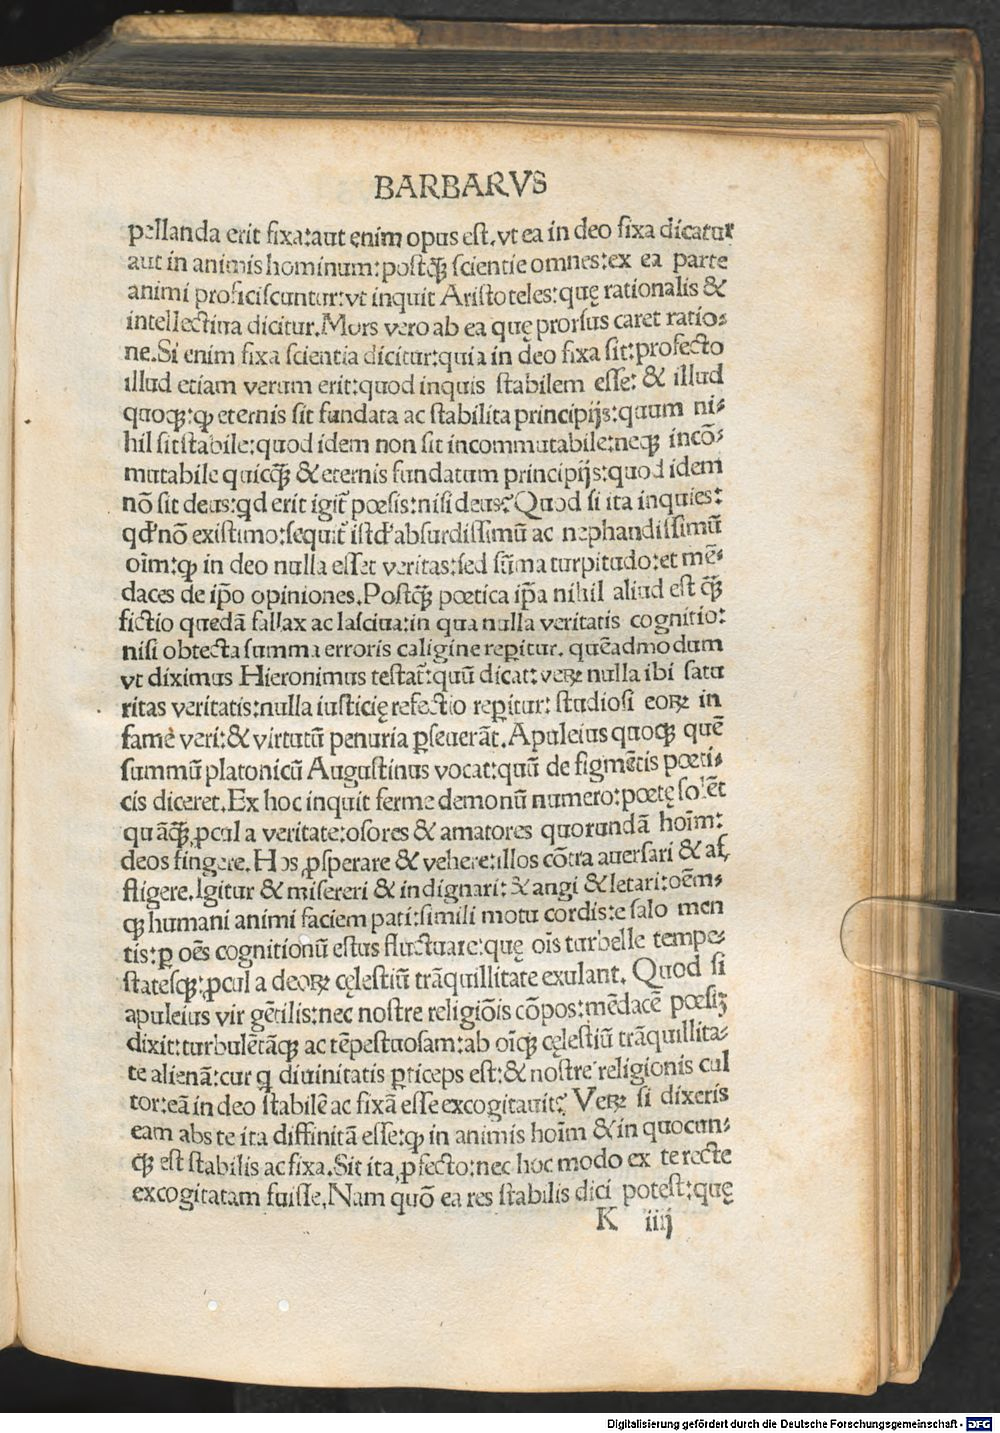 BARBARVS
pellanda erit fixa:aut ęnim opus est.vt ea in deo fixa dicatur
aut in animis hominum:postq̃ scientie omnes:ex ea parte
animi proficiscuntur:vt inquit Aristoteles:quę rationalis &
intellectiua dicitur.Mors vero ab ea quę prorsus caret ratio⸗
ne.Si enim fixa scientia dicitur:quia in deo fixa sit:profecto
illud etiam verum erit:quod inquis stabilem esse: & illud
quoqꝫ:ꝙ eternis sit fundata ac stabilita principijs:quum ni⸗
hil sit stabile:quod idem non sit incommutabile:neqꝫ incō⸗
mutabile quicq̃ & eternis fundatum principijs:quod idem
nō sit deus:qd erit igit̃ poesis:nisi deus? Quod si ita inquies:
qđ nō existimo:sequit̃ istđ absurdissimū ac nephandissimū
oīm:ꝙ in deo nulla esset veritas:sed sūma turpitudo:et mē⸗
daces de ip̄o opiniones.Postq̃ poetica ip̄a nihil aliud est q̃
fictio quedā fallax ac lasciua:in qua nulla veritatis cognitio:
nisi obtecta summa erroris caligine reꝑitur. quēadmodum
vt diximus Hieronimus testat̃:quū dicat:veꝝ nulla ibi satu
ritas veritatis:nulla iusticię refectio reꝑitur: studiosi eoꝝ in
fame veri:& virtutū penuria ꝑseuerāt.Apuleius quoqꝫ quē
summū platonicū Augustinus vocat:quū de figmētis poeti⸗
cis diceret.Ex hoc inquit ferme demonū numero:poetę solēt
quāq̃ ꝓcul a veritate:osores & amatores quorundā hoīm:
deos fingere.Hos ꝓsperare & vehere:illos cōtra auersari & af⸗
fligere.Igitur & misereri & indignari: & angi & letari:oēm⸗
qꝫ humani animi faciem pati:simili motu cordis:e salo men
tis:ꝑ oēs cognitionū estus fluctuare:quę oīs turbelle tempe⸗
statesqꝫ:ꝓcul a deoꝝ cęlestiū trāquillitate exulant. Quod si
apuleius vir gētilis:nec nostre religiōis cōpos:mēdacē poesiꝫ
dixit:turbulētāqꝫ ac tēpestuosam:ab oīqꝫ cęlestiū trāquillita⸗
te alienā:cur q diuinitatis ꝑticeps est:& nostre religionis cul
tor:eā in deo stabilē ac fixā esse excogitauit? Veꝝ si dixeris
eam abs te ita diffinitā esse:ꝙ in animis hoīm & in quocun⸗
qꝫ est stabilis ac fixa.Sit ita ꝓfecto:nec hoc modo ex te recte
excogitatam fuisse.Nam quō ea res stabilis dici potest:quę
K iiij
Digitalisierung gefördert durch die Deutsche Forschungsgemeinschaft - DFG